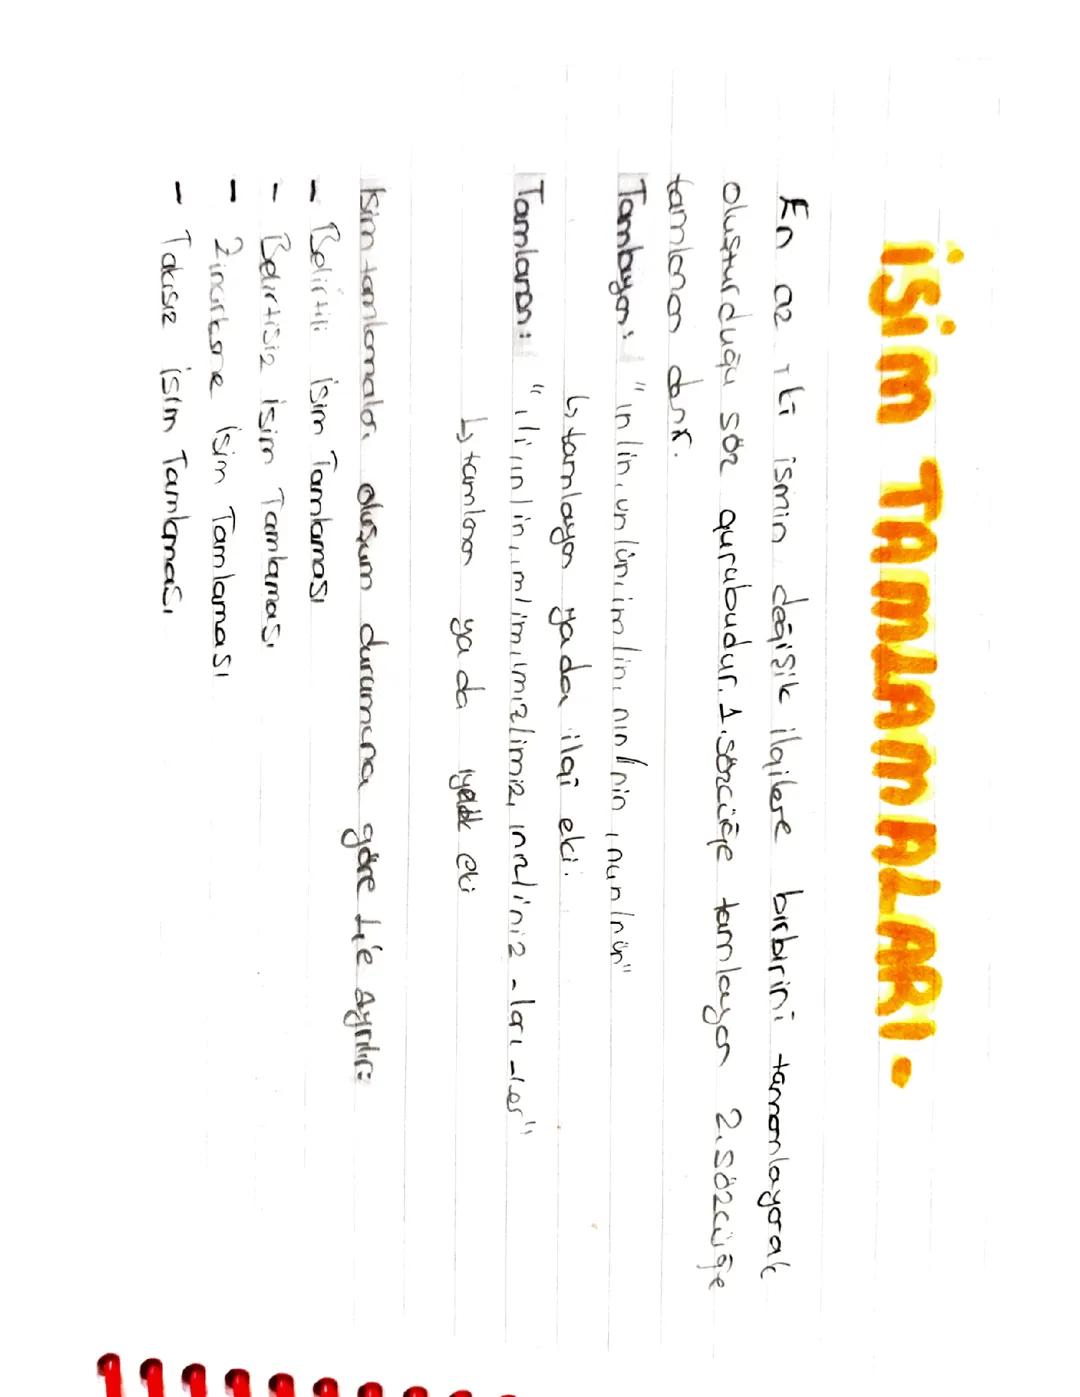 İSİM TAMLAMALARI.
En az iki ismin değişik ilgilere birbirini tamamlayarak
oluşturduğu söz gurubudur. 1.sözcüğe tamlayan 2.sözcüğe
tamlanan denir.
Tamlayan: "ın/in, un/ün, ım/im, nın/nin, nun/nün"
↳ tamlayan yada ilgi eki.
Tamlanan: "ı/i, ın/in, ım/im, ımız/imiz, ınız/iniz -ları -leri"
↳ tamlanan ya da iyelik eki
İsim tamlamaları oluşum durumuna göre 4'e ayrılır:
- Belirtili isim Tamlaması
- Belirtisiz isim Tamlaması
- Zincirleme isim Tamlaması
- Takısız isim Tamlaması